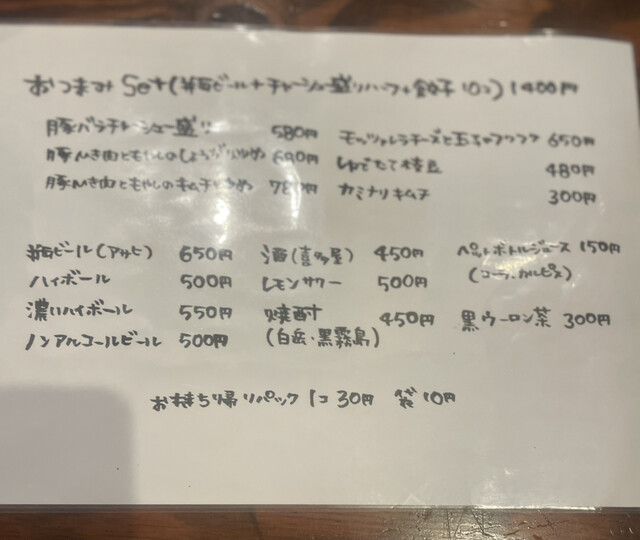 おつまみSet(瓶ビール+チャーシュー盛りハーフ+餃子10コ) 1400円
豚バラチャーシュー盛り 580円
モッツァレラチーズと玉ちゃフワフワ 650円
豚ひき肉ともやしのしょうが炒め 690円
ゆでたて枝豆 480円
豚ひき肉ともやしのキムチ炒め 780円
カミナリキムチ 300円
瓶ビール(アサヒ) 650円 酒(喜多屋) 450円 ペットボトルジュース 150円
ハイボール 500円 レモンサワー 500円 (コーラ・カルピス)
濃いハイボール 550円 焼酎 450円 黒ウーロン茶 300円
ノンアルコールビール 500円 (白岳・黒霧島)
お持ち帰りパック 1コ 30円 袋 10円